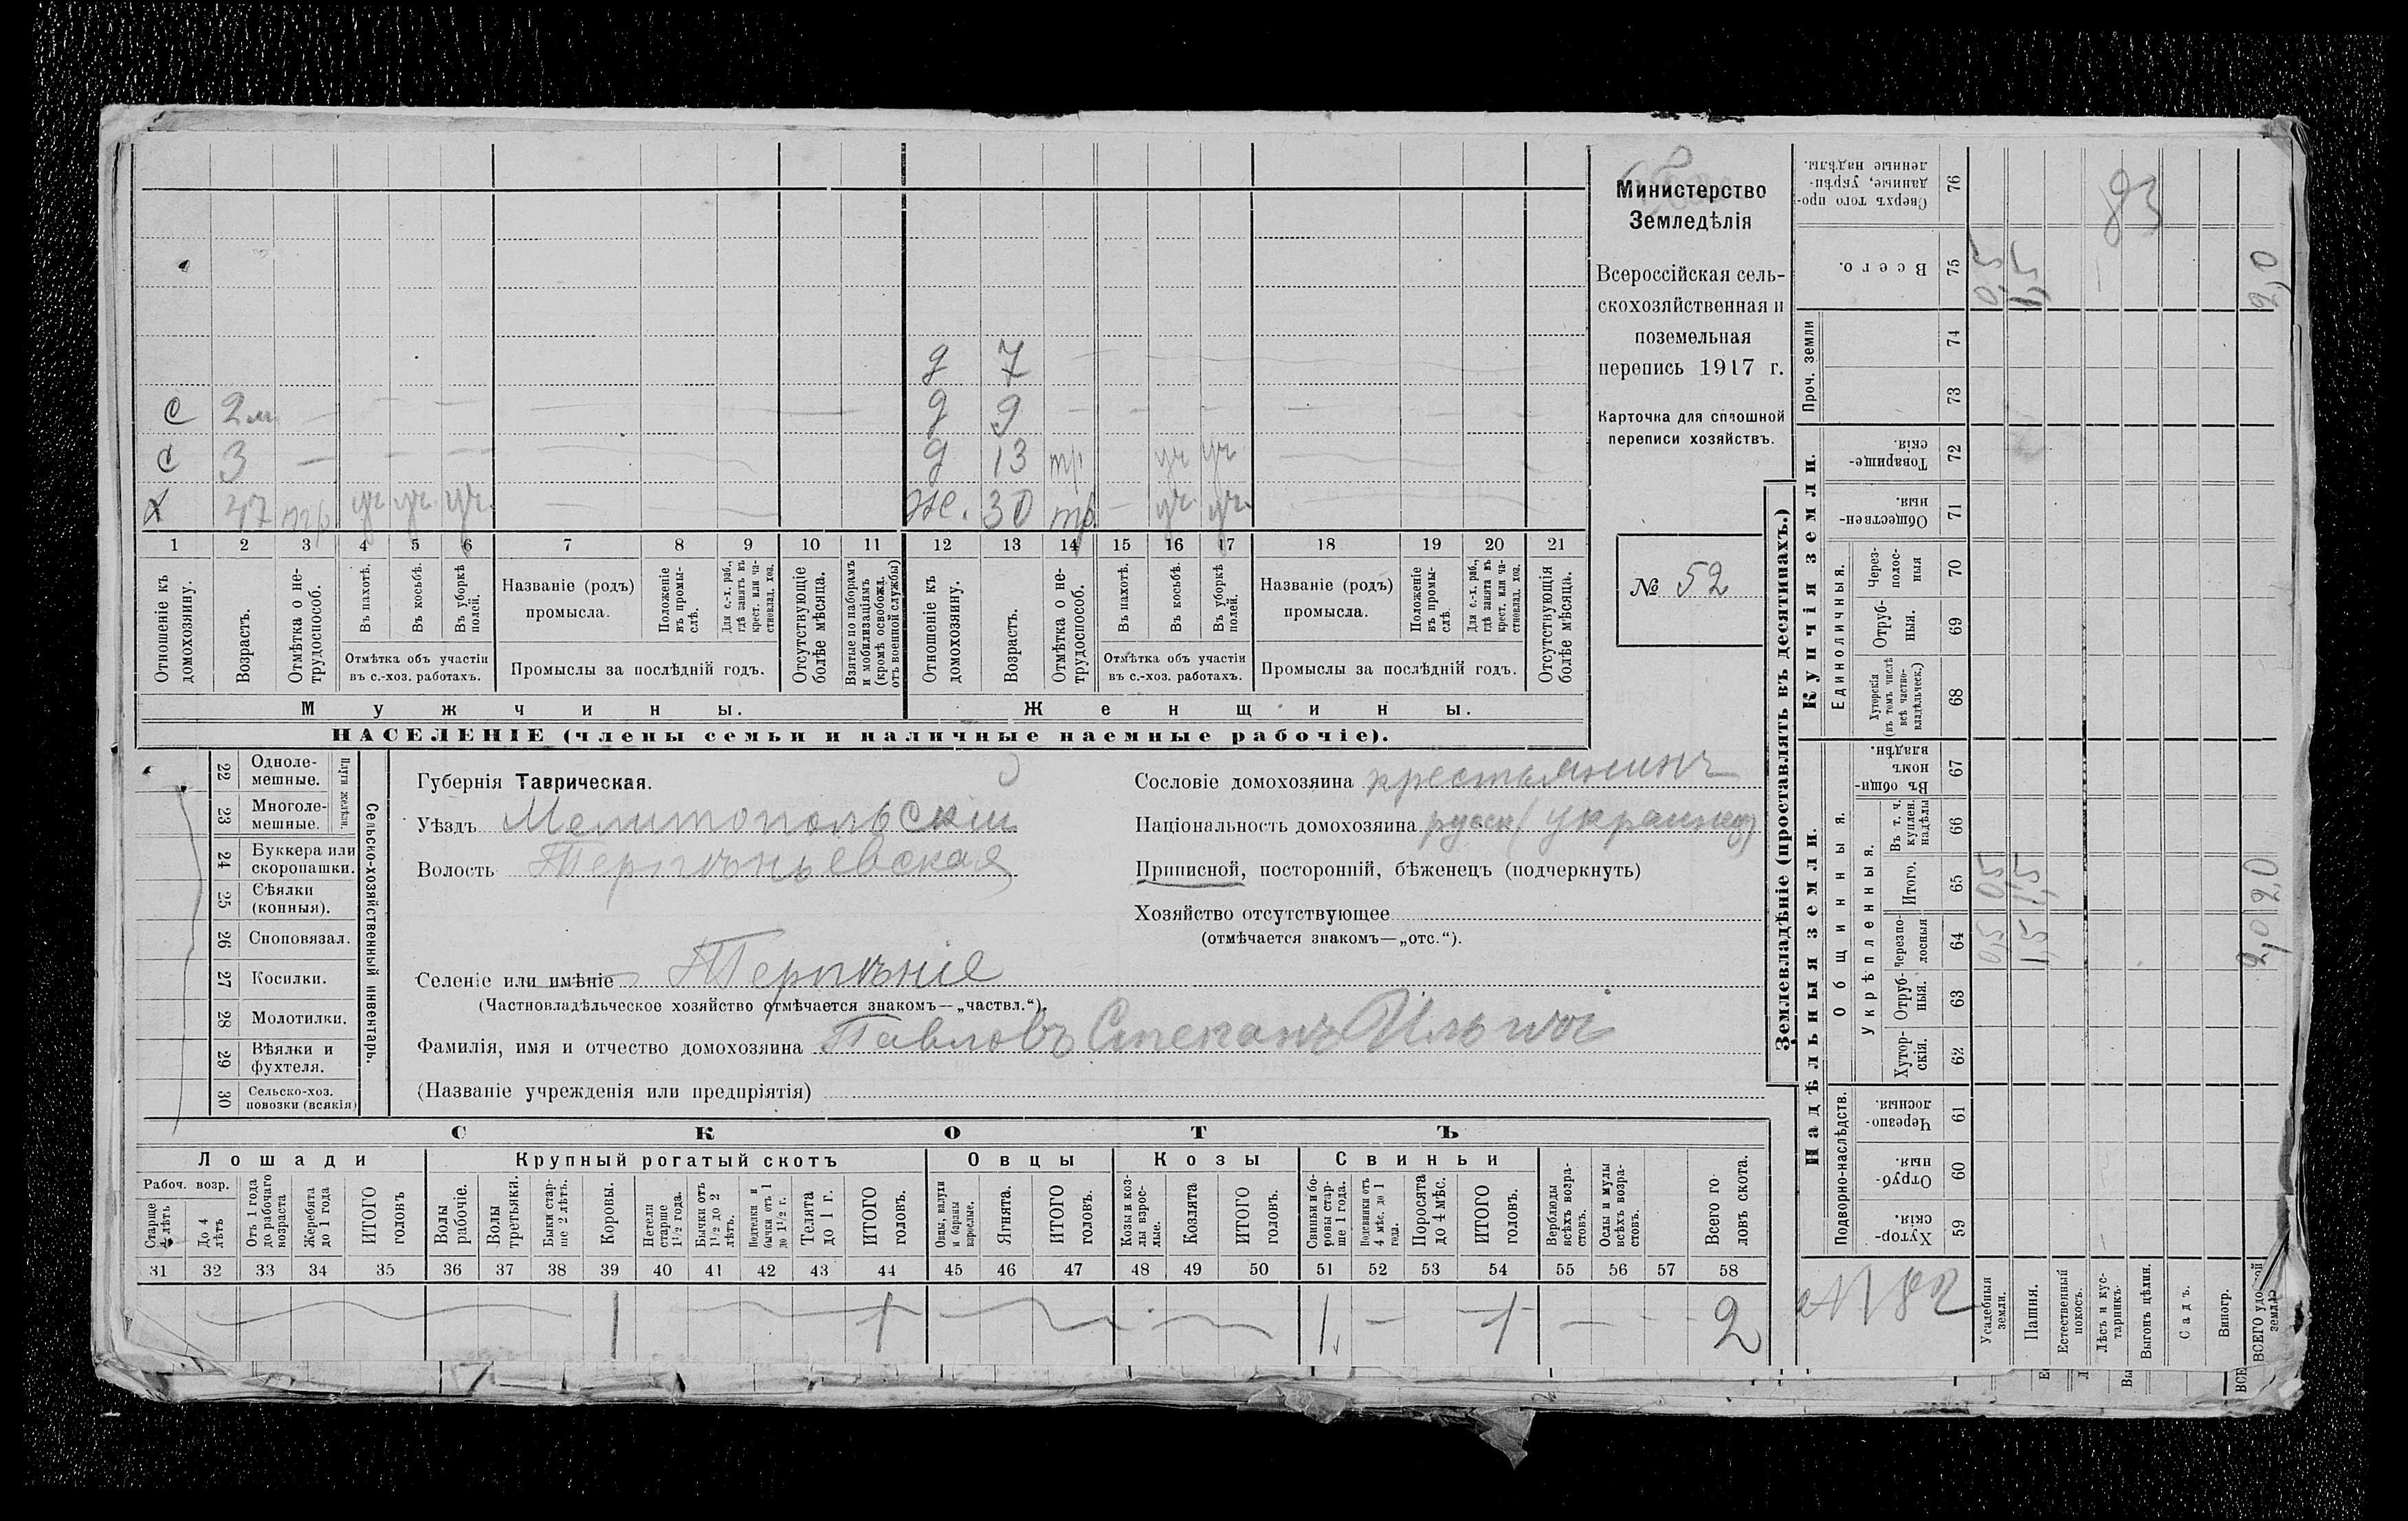 д 7
С 2 м д 9
С 3 д 13 тр уч уч
х 37 тр уч уч уч. же. 30 тр уч уч.
1 2 3 4 5 6 7 8 9 10 11 12 13 14 15 16 17 18 19 20 21
Отношеніе къ домохозяину.
Возрастъ.
Отмѣтка о не-трудоспособ.
Въ пахотѣ.
Въ косьбѣ.
Въ уборкѣ полей.
Отмѣтка объ участіи
въ с.-хоз. работахъ.
Названіе (родъ)
промысла.
Положеніе въ промы-слѣ.
Для с.-х. раб., гдѣ занятъ въ крест. или ча-стновлад. хоз.
Промыслы за послѣдній годъ.
Отсутствующіе болѣе мѣсяца.
Взятые по наборамъ и мобилизаціямъ (кромѣ освобожд. отъ военной службы)
Отношеніе къ домохозяину.
Возрастъ.
Отмѣтка о не-трудоспособ.
Въ пахотѣ.
Въ косьбѣ.
Въ уборкѣ полей.
Отмѣтка объ участіи
въ с.-хоз. работахъ.
Названіе (родъ)
промысла.
Положеніе въ промы-слѣ.
Для с.-х. раб., гдѣ занята въ крест. или ча-стновлад. хоз.
Промыслы за послѣдній годъ.
Отсутствующія болѣе мѣсяца.
Мужчины. Женщины.
НАСЕЛЕНІЕ (члены семьи и наличные наемные рабочіе).
Министерство
Земледѣлія
Всероссійская сель-
скохозяйственная и
поземельная
перепись 1917 г.
Карточка для сплошной
переписи хозяйствъ.
№ 52
22 Одноле-
мешные.
23 Многоле-
мешные.
Плуги желѣзн.
24 Буккера или
скоропашки.
25 Сѣялки
(конныя).
26 Сноповязал.
27 Косилки.
28 Молотилки.
29 Вѣялки и
фухтеля.
30 Сельско-хоз.
повозки (всякія)
Сельско-хозяйственный инвентарь.
Губернія Таврическая.
Уѣздъ Мелитопольскій
Волость Терпѣньевская
Селеніе или имѣніе Терпѣніе
(Частновладѣльческое хозяйство отмѣчается знакомъ—„частвл.“).
Фамилія, имя и отчество домохозяина Павловъ Степанъ Ильичъ
(Названіе учрежденія или предпріятія)
Сословіе домохозяина крестьянинъ
Національность домохозяина русск (украинец)
Приписной, посторонній, бѣженецъ (подчеркнуть)
Хозяйство отсутствующее
(отмѣчается знакомъ—„отс.“).
СКОТЪ
Лошади Крупный рогатый скотъ Овцы Козы Свиньи
Рабоч. возр.
Старше 4 лѣтъ
До 4 лѣтъ
Отъ 1 года до рабочаго возраста
Жеребята до 1 года
ИТОГО головъ
Волы рабочіе.
Волы третьяки.
Быки стар-ше 2 лѣтъ.
Коровы.
Нетели старше 1½ года.
Бычки отъ 1½ до 2 лѣтъ.
Подтелки и бычки отъ 1 до 1½ г.
Телята до 1 г.
ИТОГО головъ.
Овцы, валухи и бараны взрослые.
Ягнята.
ИТОГО головъ.
Козы и коз-лы взрос-лые.
Козлята
ИТОГО головъ.
Свиньи и бо-ровы стар-ше 1 года.
Подсвинки отъ 4 мѣс. до 1 года.
Поросята до 4 мѣс.
ИТОГО головъ.
Верблюды всѣхъ возра-стовъ.
Ослы и мулы всѣхъ возра-стовъ.
Всего го-ловъ скота.
31 32 33 34 35 36 37 38 39 40 41 42 43 44 45 46 47 48 49 50 51 52 53 54 55 56 57 58
1 1 1 1 2
Землевладѣніе (проставлять въ десятинахъ.)
Купчія земли.
Надѣльныя земли.
Сверхъ того про-данные, укрѣп-ленные надѣлы. 76
83
Всего. 75 0,5 1,5 2,0
Проч. земли 74
73
Товарище-скія. 72
Обществен-ныя. 71
Единоличныя.
Через-полос-ныя 70
Отруб-ныя. 69
Хуторскія (въ томъ числѣ всѣ частно-владѣльческ.) 68
Общинныя.
Въ общин-номъ владѣн. 67
Укрѣпленныя.
Въ т. ч. куплен. надѣлы 66
Итого. 65 0,5 1,5 2,0
Черезпо-лосныя 64 0,5 1,5 2,0
Отруб-ныя. 63
Хутор-скія. 62
Подворно-наслѣдств.
Черезпо-лосныя. 61
Отруб-ныя. 60
Хутор-скія. 59
№ 82
Усадебныя земли.
Пашня.
Естественный покосъ.
Лѣсъ и кус-тарникъ.
Выгонъ цѣлин.
Садъ.
Виногр.
ВСЕГО